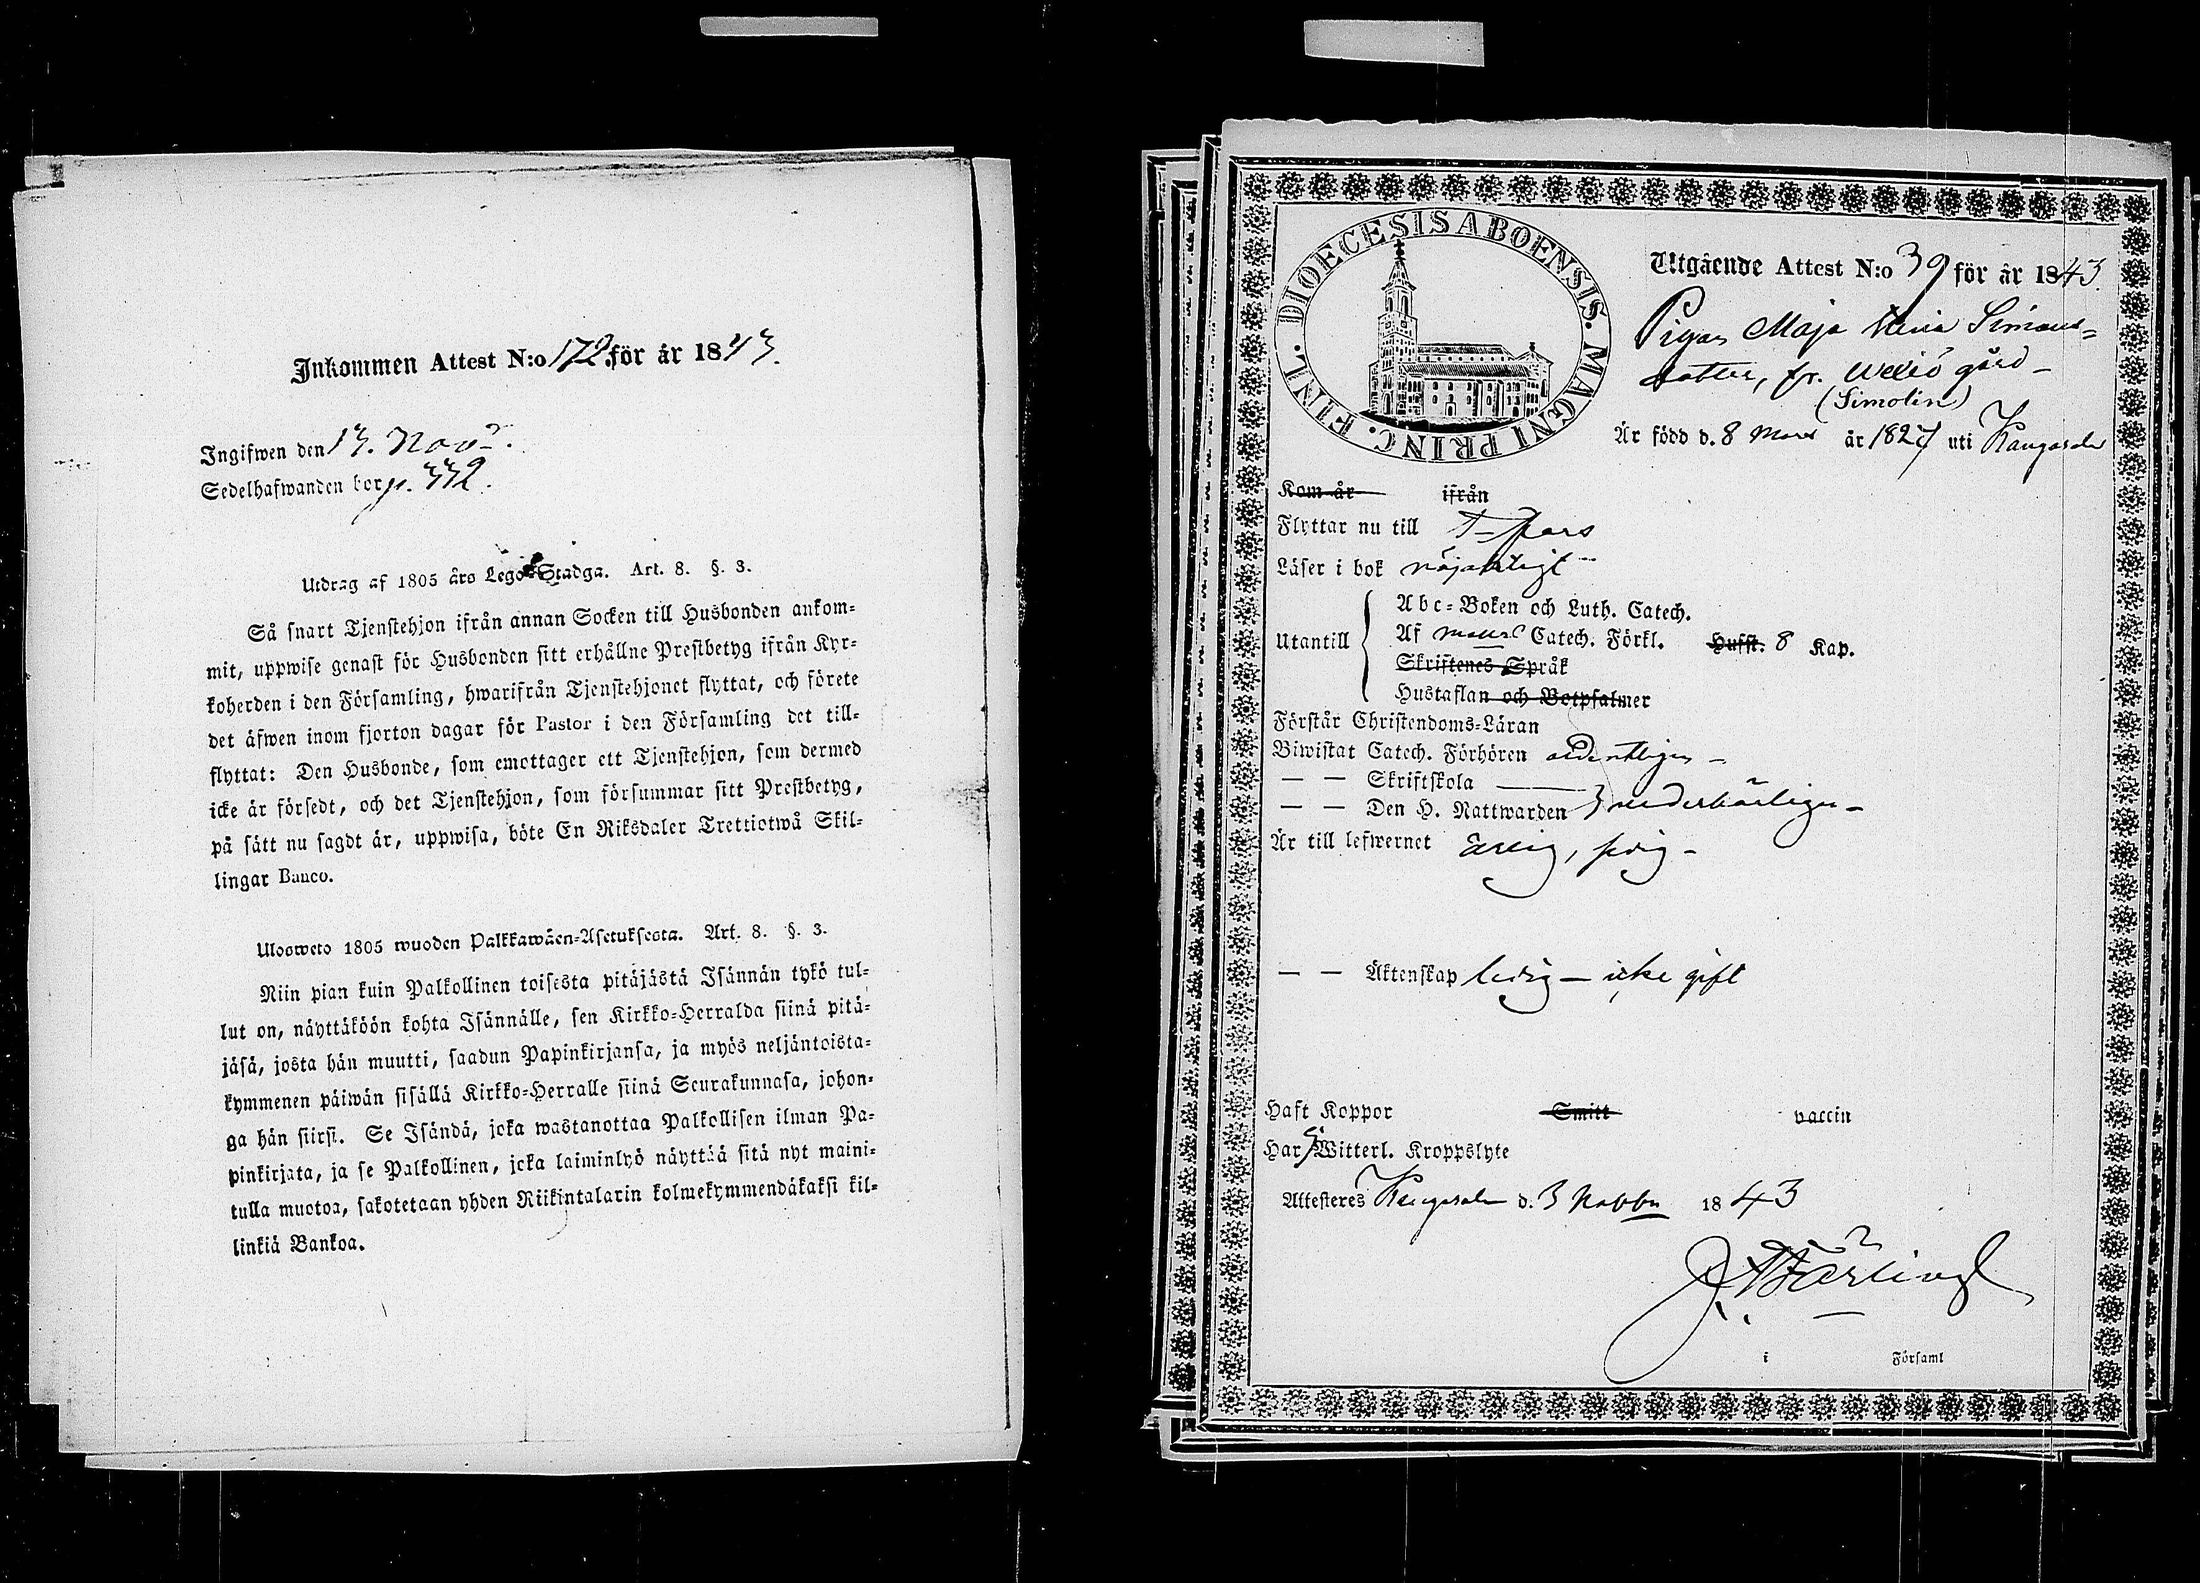 Inkommen Attest N:o 172 för år 1843.
Ingifwen den 13. Nov.
Sedelhafwanden bor p. 442.
Utdrag af 1805 års Lego-Stadga. Art. 8. §. 3.
Så snart Tjenstehjon ifrån annan Socken till Husbonden ankom-
mit, uppwise genast för Husbonden sitt erhållne Prestbetyg ifrån Kyr-
koherden i den Församling, hwarifrån Tjenstehjonet flyttat, och förete
det äfwen inom fjorton dagar för Pastor i den Församling det till-
flyttat: Den Husbonde, som emottager ett Tjenstehjon, som dermed
icke är försedt, och det Tjenstehjon, som försummar sitt Prestbetyg,
på sätt nu sagdt är, uppwisa, böte En Riksdaler Trettiotwå Skil-
lingar Banco.
Ulosweto 1805 wuoden Palkkawäen-Asetuksesta. Art. 8. §. 3.
Niin pian kuin Palkollinen toisesta pitäjästä Isännän tykö tul-
lut on, näyttäköön kohta Isännälle, sen Kirkko-Herralda siinä pitä-
jäsä, josta hän muutti, saadun Papinkirjansa, ja myös neljäntoista-
kymmenen päiwän sisällä Kirkko-Herralle siinä Seurakunnasa, johon-
ga hän siirsi. Se Isändä, joka wastanottaa Palkollisen ilman Pa-
pinkirjata, ja se Palkollinen, joka laiminlyö näyttää sitä nyt maini-
tulla muotoa, sakotetaan yhden Riikintalarin kolmekymmendäkaksi kil-
linkiä Bankoa.
DIOECESIS ABOENSIS. MAGNI PRINC. FINL.
Utgående Attest N:o 39 för år 1843.
Pigan Maja Simons-
dotter, fr. gård
(Simolin)
Är född d. 8 Mars år 1827 uti Kangasala
Kom år ifrån
Flyttar nu till T-fors
Läser i bok nöjaktigt
Utantill
Abc-Boken och Luth. Catech.
Af Catech. Förkl. Hufst. 8 Kap.
Skriftenes Språk
Hustaflan och Botpsalmer
Förstår Christendoms-Läran
Biwistat Catech. Förhören ordentligen –
— — Skriftskola
— — Den H. Nattwarden wederbörligen –
Är till lefwernet ärlig, –
— — Äktenskap ledig – icke gift
Haft Koppor Smitt vaccin
Har Witterl. Kroppslyte
Attesteres Kangasala d. 3 Novbr 1843
i Församl